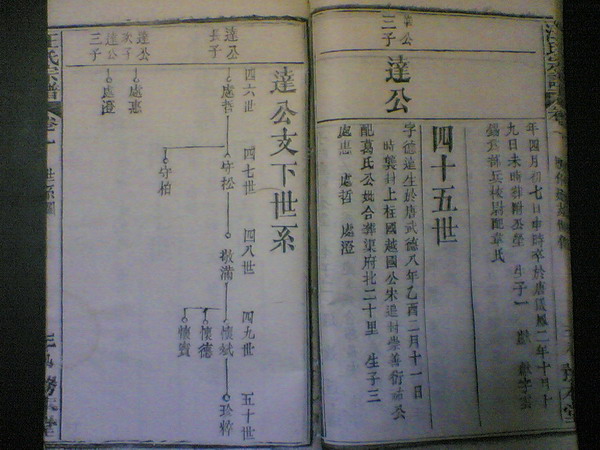 汪氏宗譜
卷一
年四月初七日申時卒於唐儀鳳二年十月十
九日未時
四十五世
字德達生於唐武德八年乙酉二月十一日
時襲封上柱國越國公宋追封崇善衍祐公
配葛氏公妣合葬渠府北二十里 生子三
處惠 處哲 處澄
達公
華公
三子
達公支下世系
四六世 四七世 四八世 四九世 五十世
達公
長子
處哲 守松 敬滿 懷斌 珍粹
守柏
懷德
懷寶
達公
次子
處惠
達公
三子
處澄
汪氏宗譜
卷一 世系圖